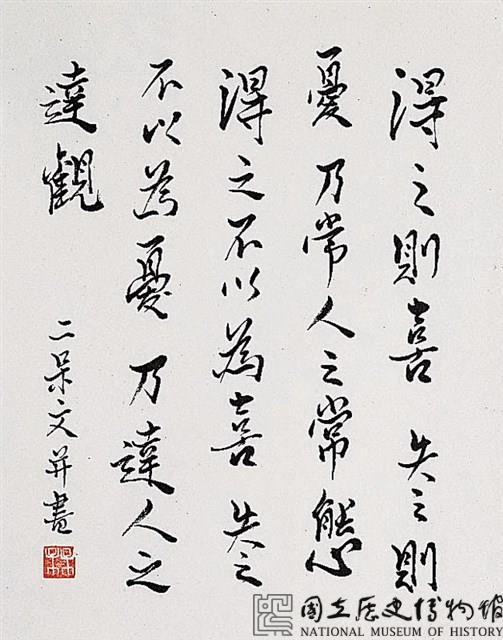 得之則喜 失之則
憂乃常人之常態
得之不以為喜 失之
不以為憂 乃達人之
達觀
二呆文并書
國立歷史博物館
NATIONAL MUSEUM OF HISTORY